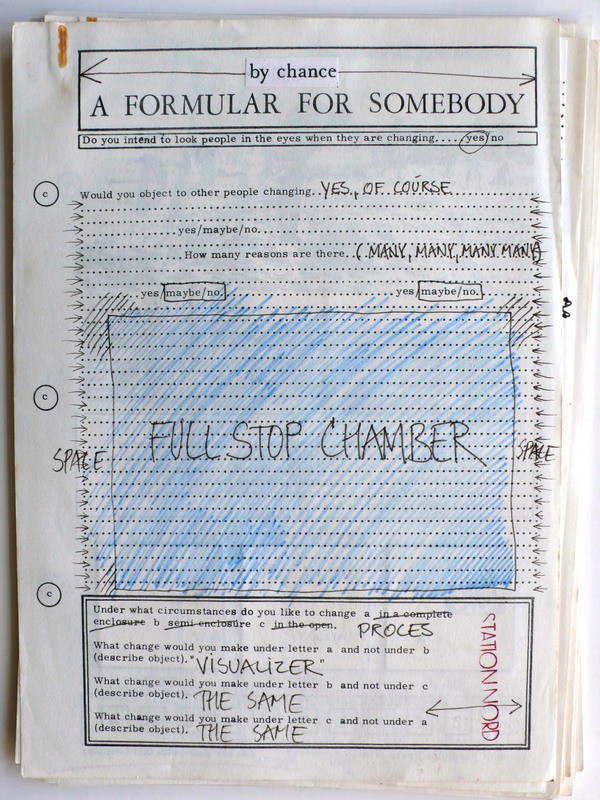 by chance
A FORMULAR FOR SOMEBODY
Do you intend to look people in the eyes when they are changing..... yes/no
c
Would you object to other people changing..YES, OF COURSE
yes/maybe/no.
How many reasons are there..(.MANY, MANY, MANY.MANY)
yes/maybe/no. yes/maybe/no.
c
FULL STOP CHAMBER
SPACE SPACE
c
Under what circumstances do you like to change a in a complete
enclosure b semi enclosure c in the open. PROCES
What change would you make under letter a and not under b
(describe object). "VISUALIZER"
What change would you make under letter b and not under c
(describe object). THE SAME
What change would you make under letter c and not under a
(describe object). THE SAME
STATION NORD